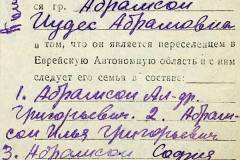 ся гр. Абрамсон
Чудес Абрамовна
в том, что он является переселенцем в
Еврейскую Автономную область и с ним
следует его семья в составе:
1. Абрамсон Ал-др.
Григорьевич. 2. Абрам-
сон Илья Григорьевич
3. Абрамсон София